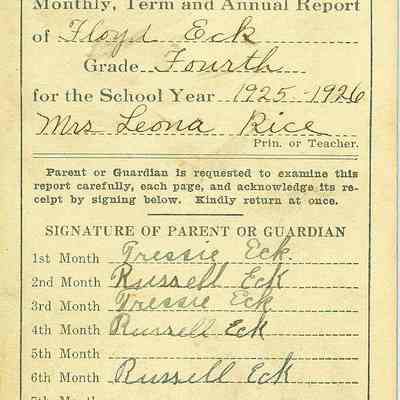 Monthly, Term and Annual Report
of Floyd Eck
Grade Fourth
for the School Year 1925-1926
Mrs Leona Rice
Prin. or Teacher.
Parent or Guardian is requested to examine this
report carefully, each page, and acknowledge its re-
ceipt by signing below. Kindly return at once.
SIGNATURE OF PARENT OR GUARDIAN
1st Month Tressie Eck.
2nd Month Russell Eck
3rd Month Tressie Eck
4th Month Russell Eck
5th Month
6th Month Russell Eck